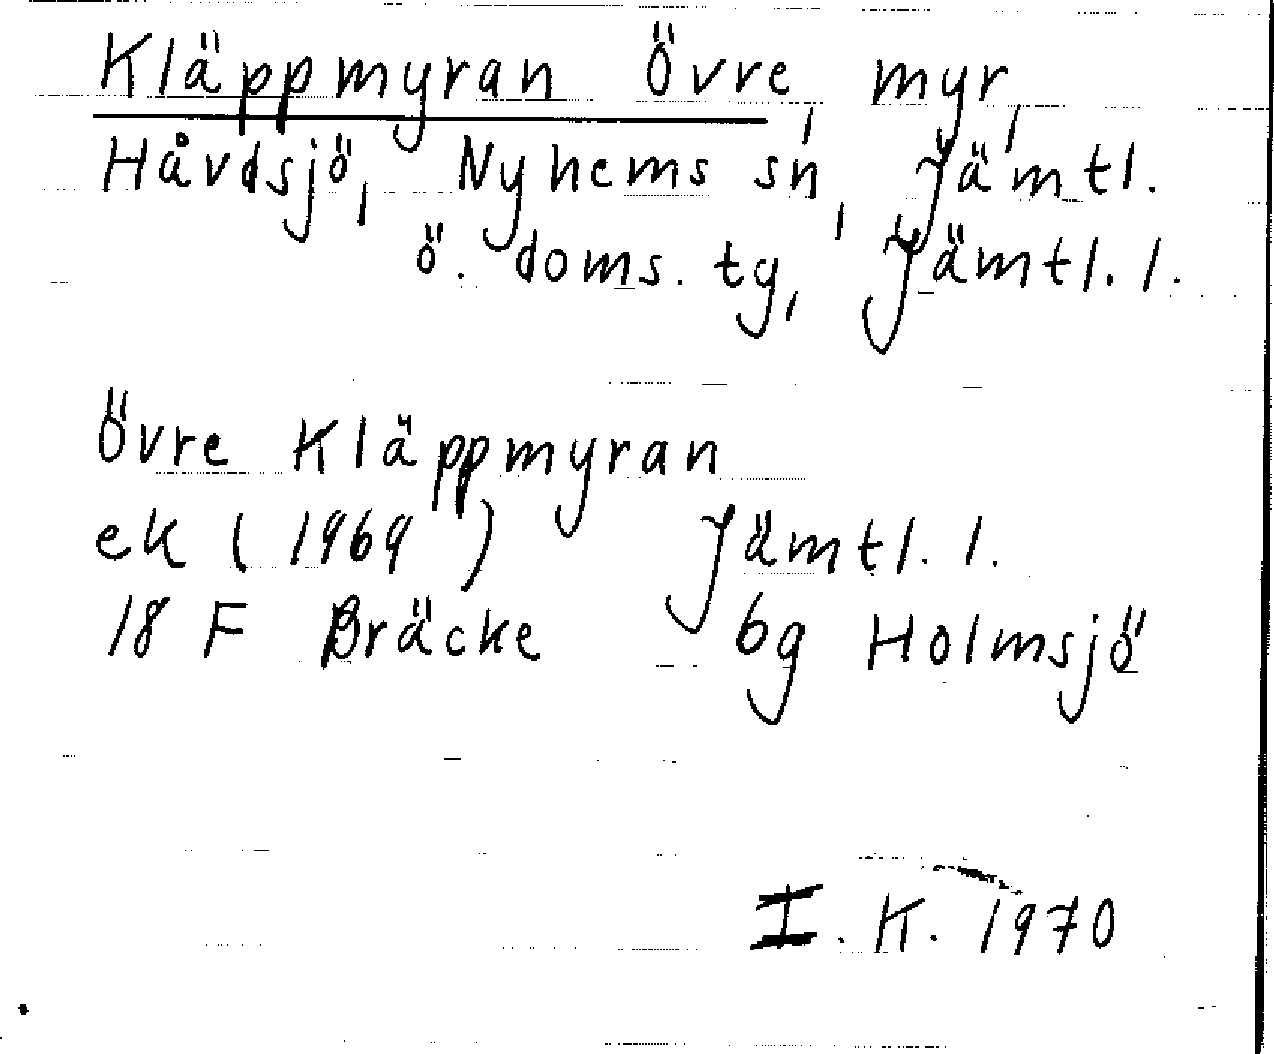 Kläppmyran Övre, myr,
Håvdsjö, Nyhems sn, Jämtl.
ö. doms. tg, Jämtl. l.
Övre Kläppmyran
ek (1969) Jämtl. l.
18 F Bräcke bg Holmsjö
I. K. 1970